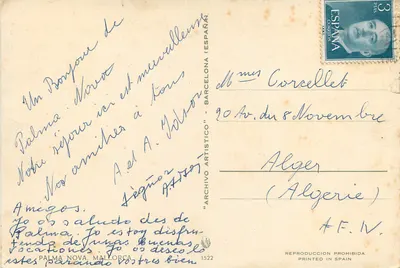 Un Bonjour de
Palma Nova
Notre séjour ici est merveilleux
Nos amitiés à tous
A. et A.
Amigos.
Yo os saludo des de
Palma. Yo estoy disfru-
tando de unas buenas
vocationes. Yo os deseo
estes parando vostres bien
PALMA NOVA, MALLORCA
1522
"ARCHIVO ARTISTICO" - BARCELONA (ESPAÑA)
3
PTAS
ESPAÑA
CORREOS
Mmes Corcellet
90 Av. du 8 Novembre
Alger
(Algerie)
A F. N.
REPRODUCCION PROHIBIDA
PRINTED IN SPAIN